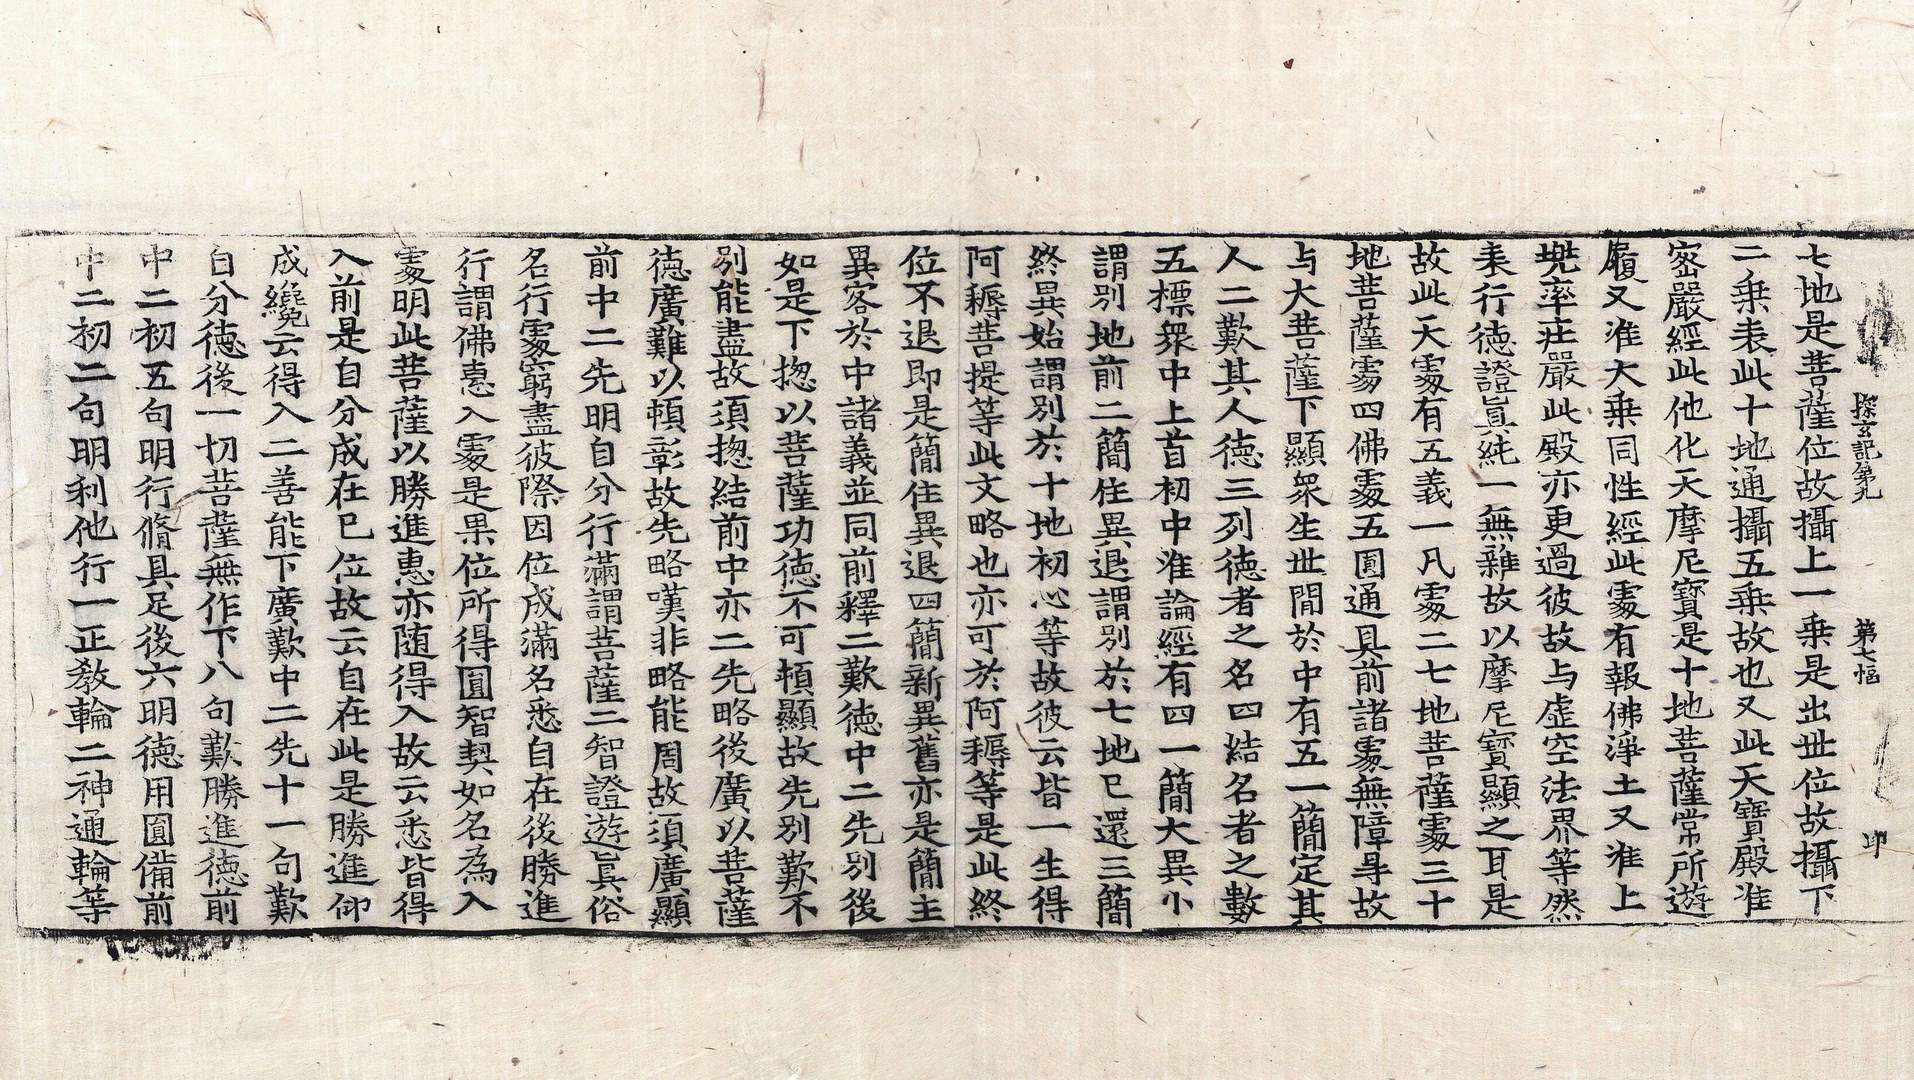 探玄記第九 第七幅 印
七地是菩薩位故攝上一乗是出世位故攝下
二乗表此十地通攝五乗故也又此天寶殿准
密嚴經此他化天摩尼寶是十地菩薩常所遊
履又准大乗同性經此䖏有報佛淨土又准上
兠率莊嚴此殿亦更過彼故与虛空法界等然
表行德證眞純一無雜故以摩尼寶顯之耳是
故此天䖏有五義一凡䖏二七地菩薩䖏三十
地菩薩䖏四佛䖏五圓通具前諸䖏無障㝵故
与大菩薩下顯衆生世間於中有五一簡定其
人二歎其人德三列德者之名四結名者之數
五標衆中上首初中准論經有四一簡大異小
謂別地前二簡住異退謂別於七地已還三簡
終異始謂別於十地初心等故彼云皆一生得
阿耨菩提等此文略也亦可於阿耨等是此終
位不退即是簡住異退四簡新異舊亦是簡主
異客於中諸義並同前釋二歎德中二先別後
如是下揔以菩薩功德不可頓顯故先別歎不
別能盡故須揔結前中亦二先略後廣以菩薩
德廣難以頓彰故先略嘆非略能周故須廣顯
前中二先明自分行滿謂菩薩二智證遊眞俗
名行䖏窮盡彼際因位成滿名悉自在後勝進
行謂佛惠入䖏是果位所得圓智契如名為入
䖏明此菩薩以勝進惠亦随得入故云悉皆得
入前是自分成在已位故云自在此是勝進仰
成纔云得入二善能下廣歎中二先十一句歎
自分德後一切菩薩無作下八句歎勝進德前
中二初五句明行脩具足後六明德用圓備前
中二初二句明利他行一正教輪二神通輪等